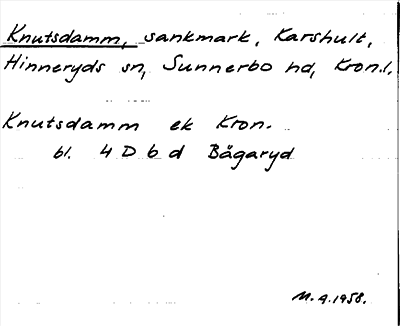 Knutsdamm, sankmark, Karshult,
Hinneryds sn, Sunnerbo hd, Kron.l.
Knutsdamm ek Kron.
bl. 4 D 6 d Bågaryd
M.A.1958.